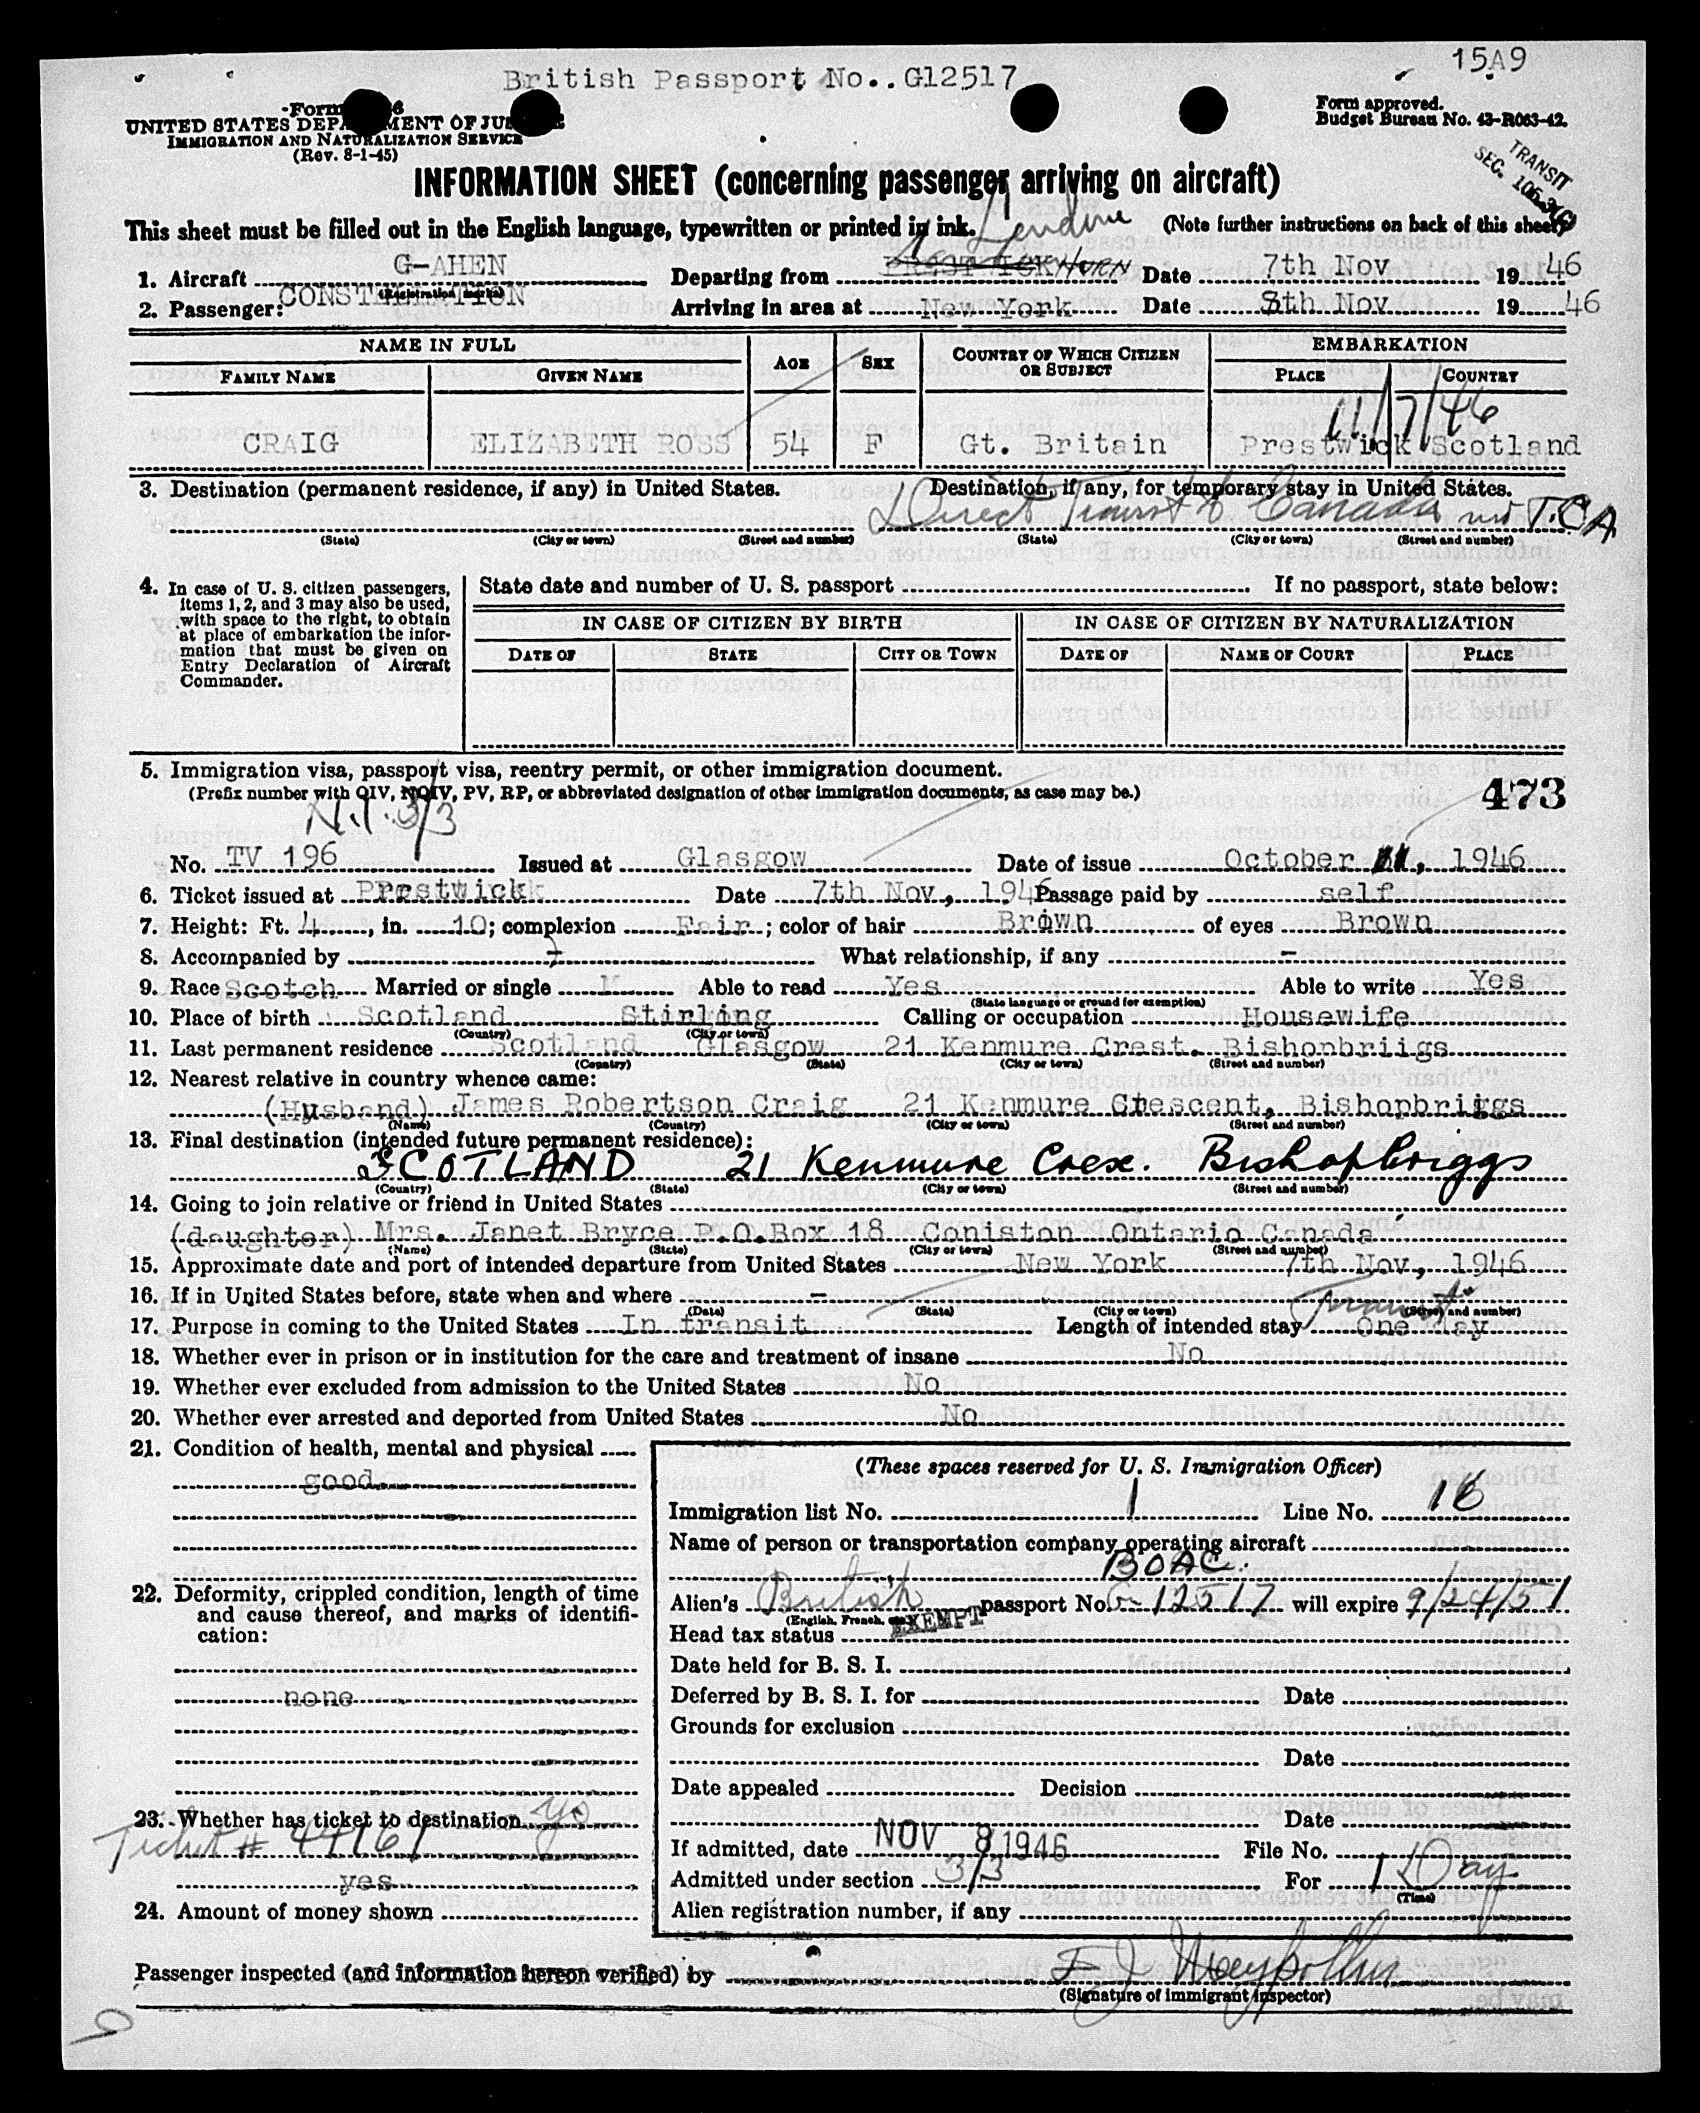 15A9
British Passport No..G12517
Form
UNITED STATES DEPARTMENT OF JUSTICE
IMMIGRATION AND NATURALIZATION SERVICE
(Rev. 8-1-45)
Form approved.
Budget Bureau No. 43-R063-42.
TRANSIT
SEC.
INFORMATION SHEET (concerning passenger arriving on aircraft)
This sheet must be filled out in the English language, typewritten or printed in ink. (Note further instructions on back of this sheet)
1. Aircraft G-AHEN Departing from PRESTWICK Date 7th Nov 1946
(Registration marks)
CONSTELLATION
2. Passenger: Arriving in area at New York Date 8th Nov. 1946
NAME IN FULL AGE SEX COUNTRY OF WHICH CITIZEN OR SUBJECT EMBARKATION
FAMILY NAME GIVEN NAME PLACE COUNTRY
11/7/46
CRAIG ELIZABETH ROSS 54 F Gt. Britain Prestwick Scotland
3. Destination (permanent residence, if any) in United States. Destination, if any, for temporary stay in United States.
Direct Transit to Canada T.C.A
(State) (City or town) (Street and number) (State) (City or town) (Street and number)
4. In case of U. S. citizen passengers, items 1, 2, and 3 may also be used, with space to the right, to obtain at place of embarkation the information that must be given on Entry Declaration of Aircraft Commander.
State date and number of U. S. passport If no passport, state below:
IN CASE OF CITIZEN BY BIRTH IN CASE OF CITIZEN BY NATURALIZATION
DATE OF STATE CITY OR TOWN DATE OF NAME OF COURT PLACE
5. Immigration visa, passport visa, reentry permit, or other immigration document.
(Prefix number with QIV, NQIV, PV, RP, or abbreviated designation of other immigration documents, as case may be.)
473
N.I. 3/3
No. TV 196 Issued at Glasgow Date of issue October 11, 1946
6. Ticket issued at Prestwick Date 7th Nov, 1946 Passage paid by self
7. Height: Ft. 4, in. 10; complexion Fair; color of hair Brown of eyes Brown
8. Accompanied by - What relationship, if any -
9. Race Scotch Married or single M Able to read Yes Able to write Yes
(State language or ground for exemption)
10. Place of birth Scotland Stirling Calling or occupation Housewife
(Country) (City or town)
11. Last permanent residence Scotland Glasgow 21 Kenmure Crest. Bishopbriigs
(Country) (State) (City or town) (Street and number)
12. Nearest relative in country whence came:
(Husband) James Robertson Craig 21 Kenmure Crescent, Bishopbriggs
(Name) (Country) (City or town) (Street and number)
13. Final destination (intended future permanent residence):
SCOTLAND 21 Kenmure Cres. Bishopbriggs
(Country) (State) (City or town) (Street and number)
14. Going to join relative or friend in United States
(daughter) Mrs. Janet Bryce P.O.Box 18 Coniston Ontario Canada
(Name) (State) (City or town) (Street and number)
15. Approximate date and port of intended departure from United States New York 7th Nov, 1946
16. If in United States before, state when and where -
(Date) (State) (City or town) (Street and number)
Transit
17. Purpose in coming to the United States In transit Length of intended stay One day
18. Whether ever in prison or in institution for the care and treatment of insane No
19. Whether ever excluded from admission to the United States No
20. Whether ever arrested and deported from United States No
21. Condition of health, mental and physical
good
22. Deformity, crippled condition, length of time and cause thereof, and marks of identification:
none
23. Whether has ticket to destination yes
Ticket # 44761
yes
24. Amount of money shown
(These spaces reserved for U. S. Immigration Officer)
Immigration list No. 1 Line No. 16
Name of person or transportation company operating aircraft
BOAC.
Alien's British passport No. G-12517 will expire 9/24/51
(English, French, etc.)
Head tax status EXEMPT
Date held for B. S. I.
Deferred by B. S. I. for Date
Grounds for exclusion
Date
Date appealed Decision
Date
If admitted, date NOV 8 1946 File No.
Admitted under section 3/3 For 1 Day
(Time)
Alien registration number, if any
Passenger inspected (and information hereon verified) by
(Signature of immigrant inspector)